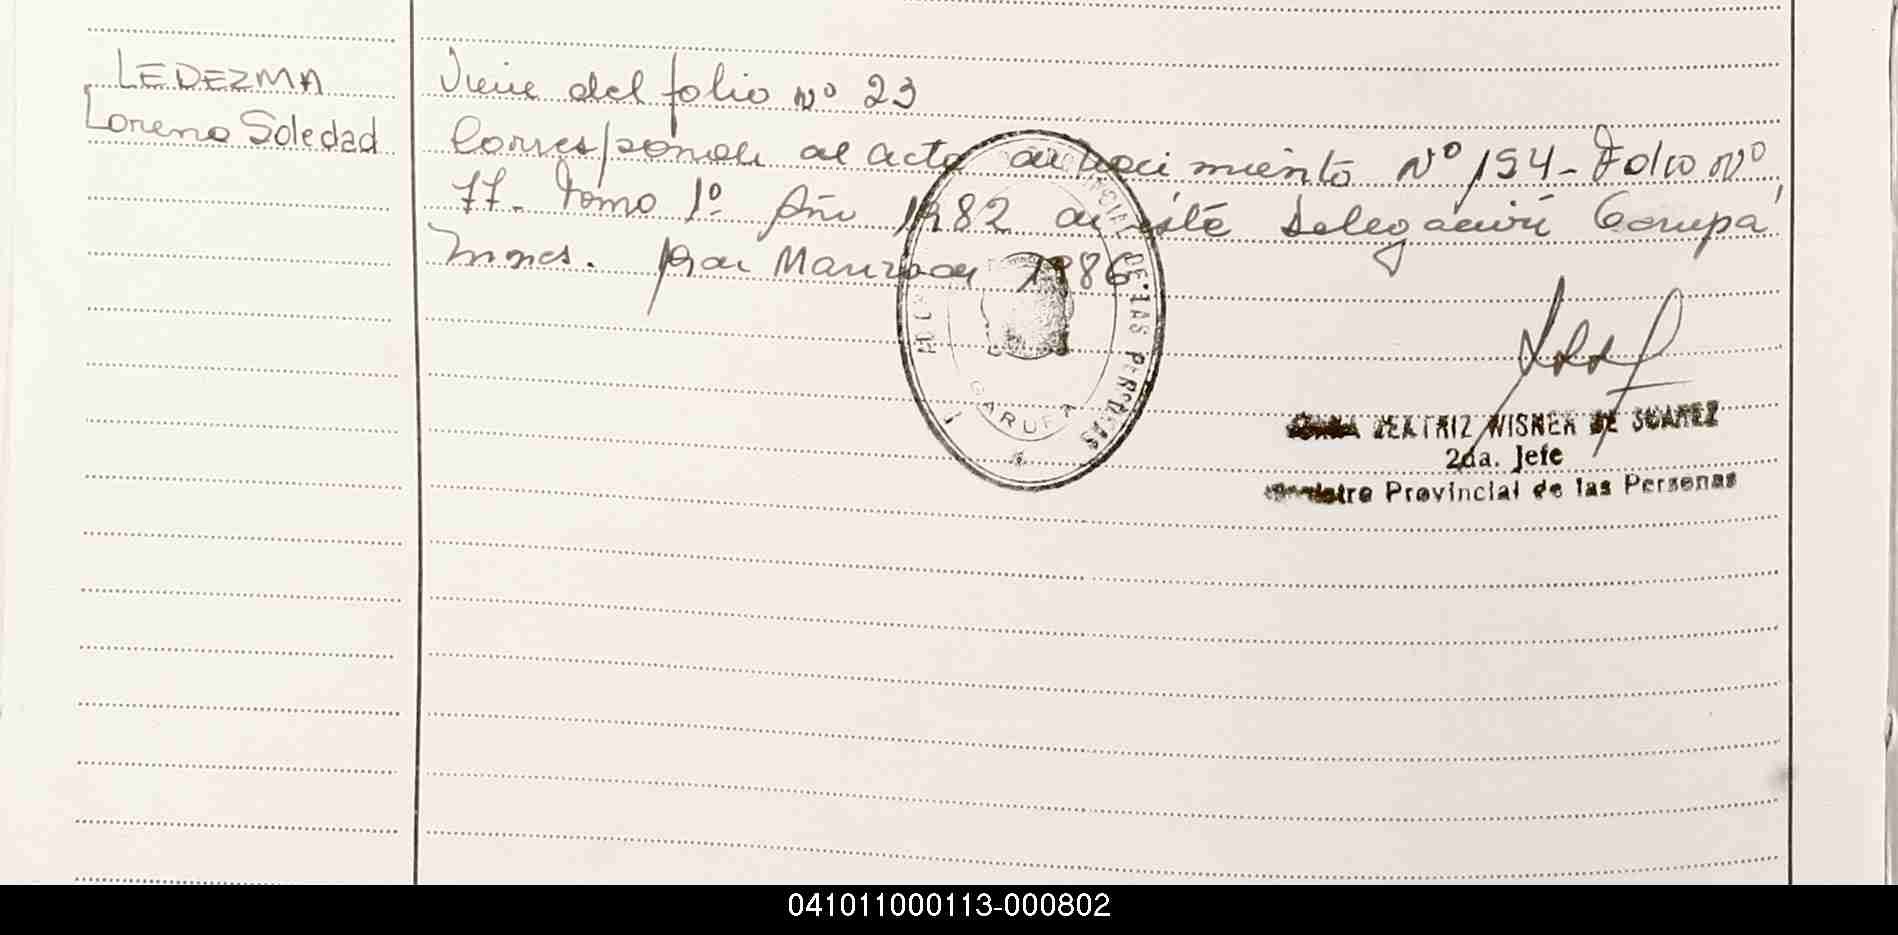 LEDEZMA
Lorena Soledad
Viene del folio Nº 23
Corresponde al acta de nacimiento Nº 194 - Folio Nº
77 - Tomo 1º Año 1982 de esta Delegación Garupá
Mnes. 1986
PROVINCIAL DE LAS PERSONAS
GARUPA
BEATRIZ WISNER DE SUAREZ
2da. Jefe
Registro Provincial de las Personas
041011000113-000802